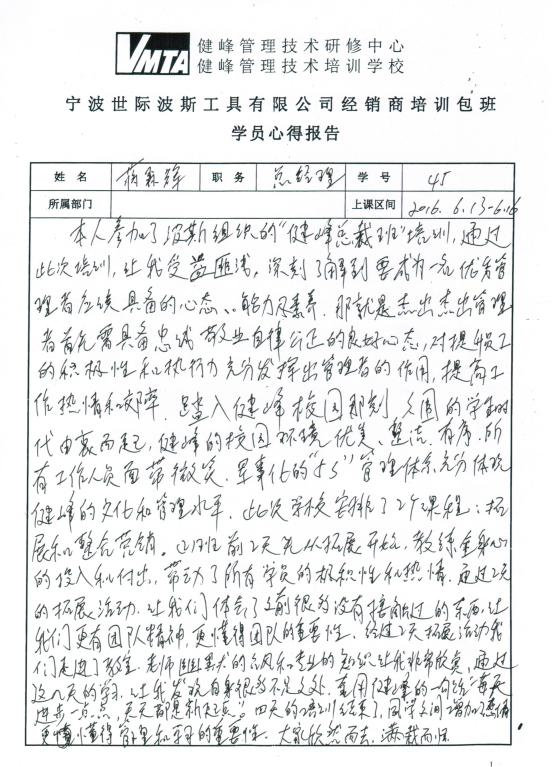 VMTA 健峰管理技术研修中心
健峰管理技术培训学校
宁波世际波斯工具有限公司经销商培训包班
学员心得报告
姓名 蒋森辉 职务 总经理 学号 45
所属部门 上课区间 2016.6.13-6.16
本人参加了波斯组织的“健峰总裁班”培训,通过
此次培训,让我受益匪浅,深刻了解到要成为一名优秀管
理者应该具备的心态、能力及素养。那就是杰出杰出管理
者首先需具备忠诚敬业自律公正的良好心态,对提升员工
的积极性和执行力充分发挥出管理者的作用,提高工
作热情和效率。踏入健峰校园那刻,久围的学生时
代由衷而起,健峰的校园环境优美、整洁、有序,所
有工作人员面带微笑,军事化的“5S”管理体系充分体现
健峰的文化和管理水平。此次学校安排了2个课程:拓
展和整合营销。课程前2天先从拓展开始,教练全身心
的投入和付出,带动了所有学员的积极性和热情,通过2天
的拓展活动,让我们体会了之前很多没有接触过的东西,让
我们更有团队精神,更懂得团队的重要性。经过2天拓展活动我
们走进了教室,老师幽默的台风和专业的知识让我非常欣赏,通过
这几天的学习,让我发现自身很多不足之处,套用健峰的一句话“每天
进步一点点,天天都是新起点”。四天的培训结束了,同学之间增加了感情
更懂懂得学习和平台的重要性。大家欣然而去,满载而归。